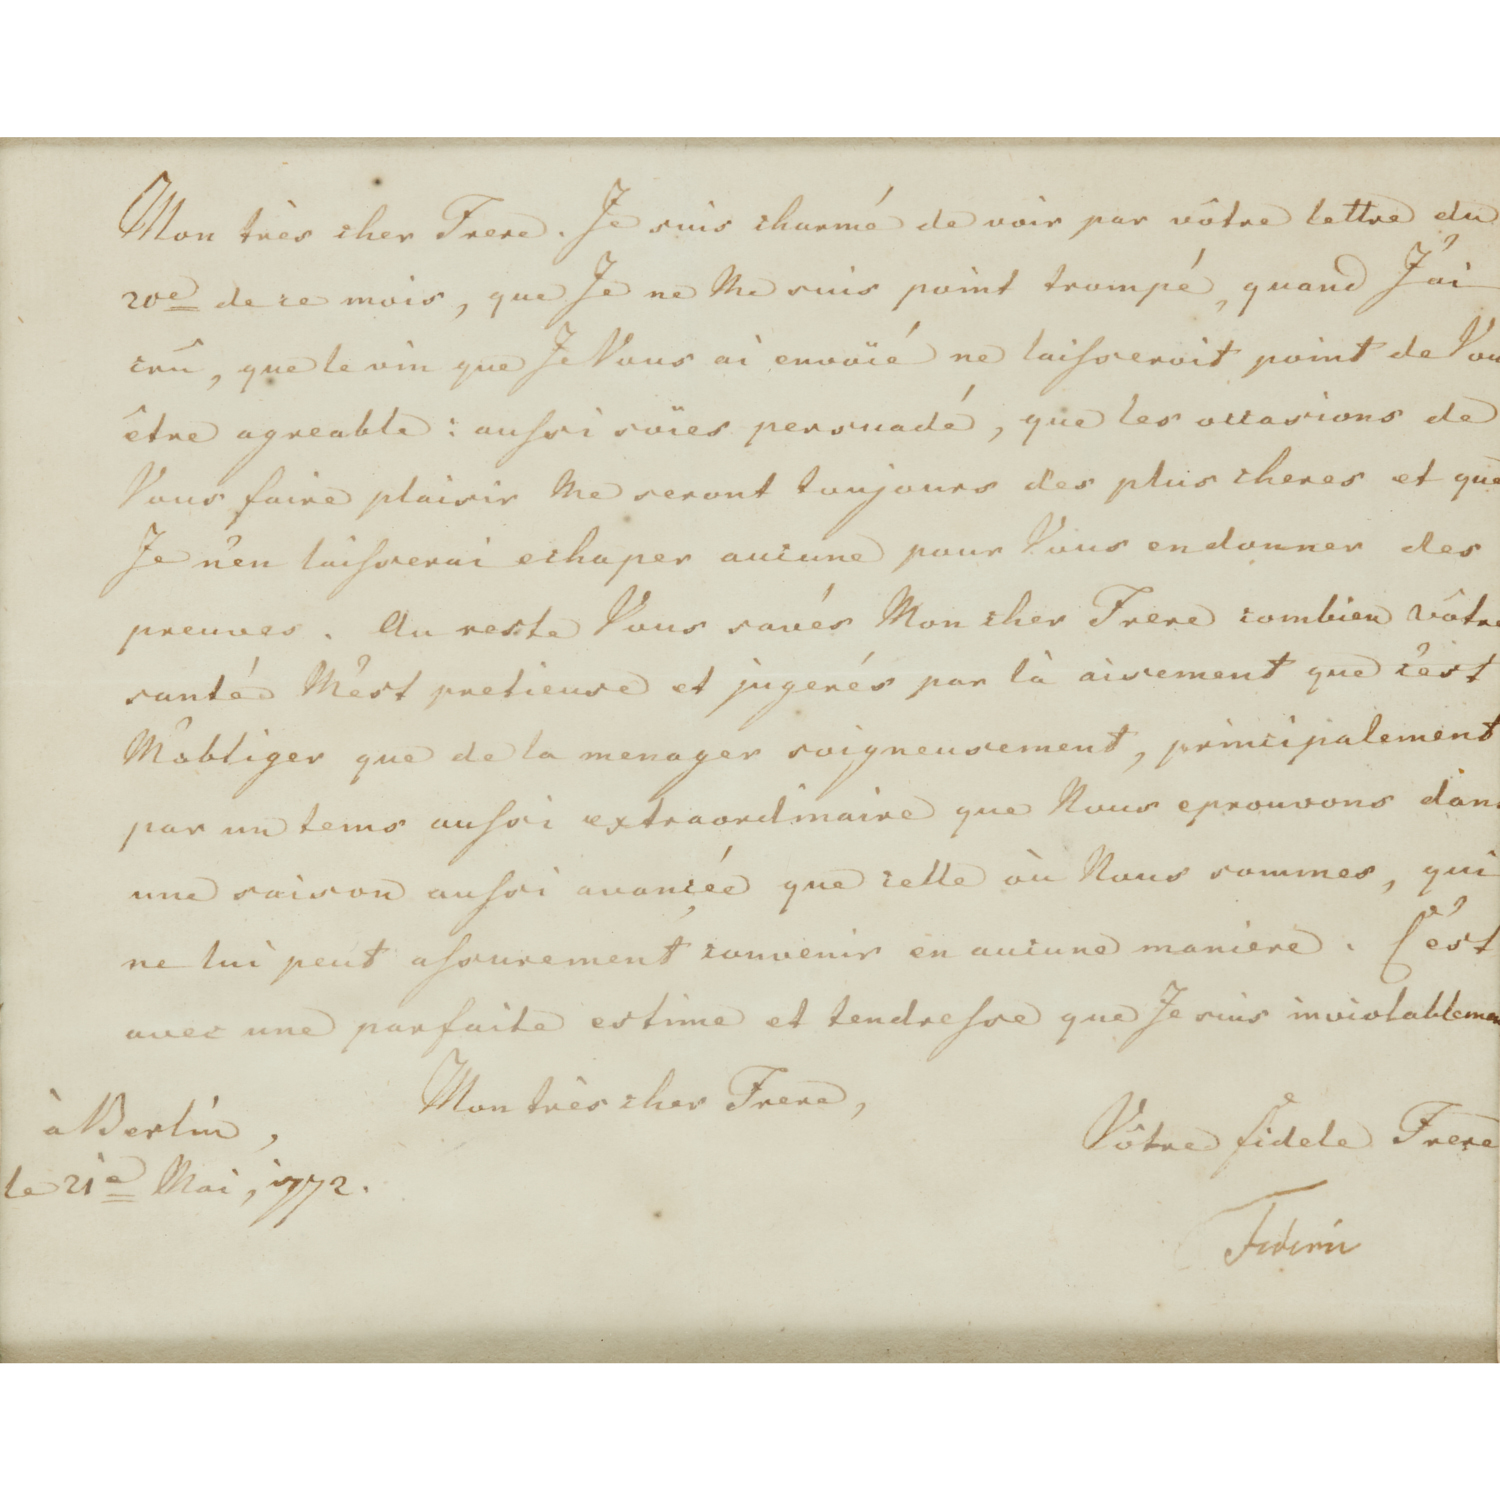 Mon très cher Frere. Je suis charmé de voir par vôtre lettre du
20e de ce mois, que Je ne Me suis point trompé, quand J'ai
crû, que le vin que Je Vous ai envoïé ne laisseroit point de Vou
être agreable: aussi soïes persuadé, que les occasions de
Vous faire plaisir Me seront toujours des plus cheres et que
Je n'en laisserai echaper aucune pour Vous en donner des
preuves. Au reste Vous savés Mon cher Frere combien vôtre
santé M'est pretieuse et jugerés par là aisement que c'est
M'obliger que de la menager soigneusement, principalement
par un tems aussi extraordinaire que Nous eprouvons dans
une saison aussi avancée que celle où Nous sommes, qui
ne lui peut assurement convenir en aucune maniere. C'est
avec une parfaite estime et tendresse que Je suis inviolablemen
Mon très cher Frere,
à Berlin,
le 21e Mai, 1772.
Vôtre fidele Frere
Federic